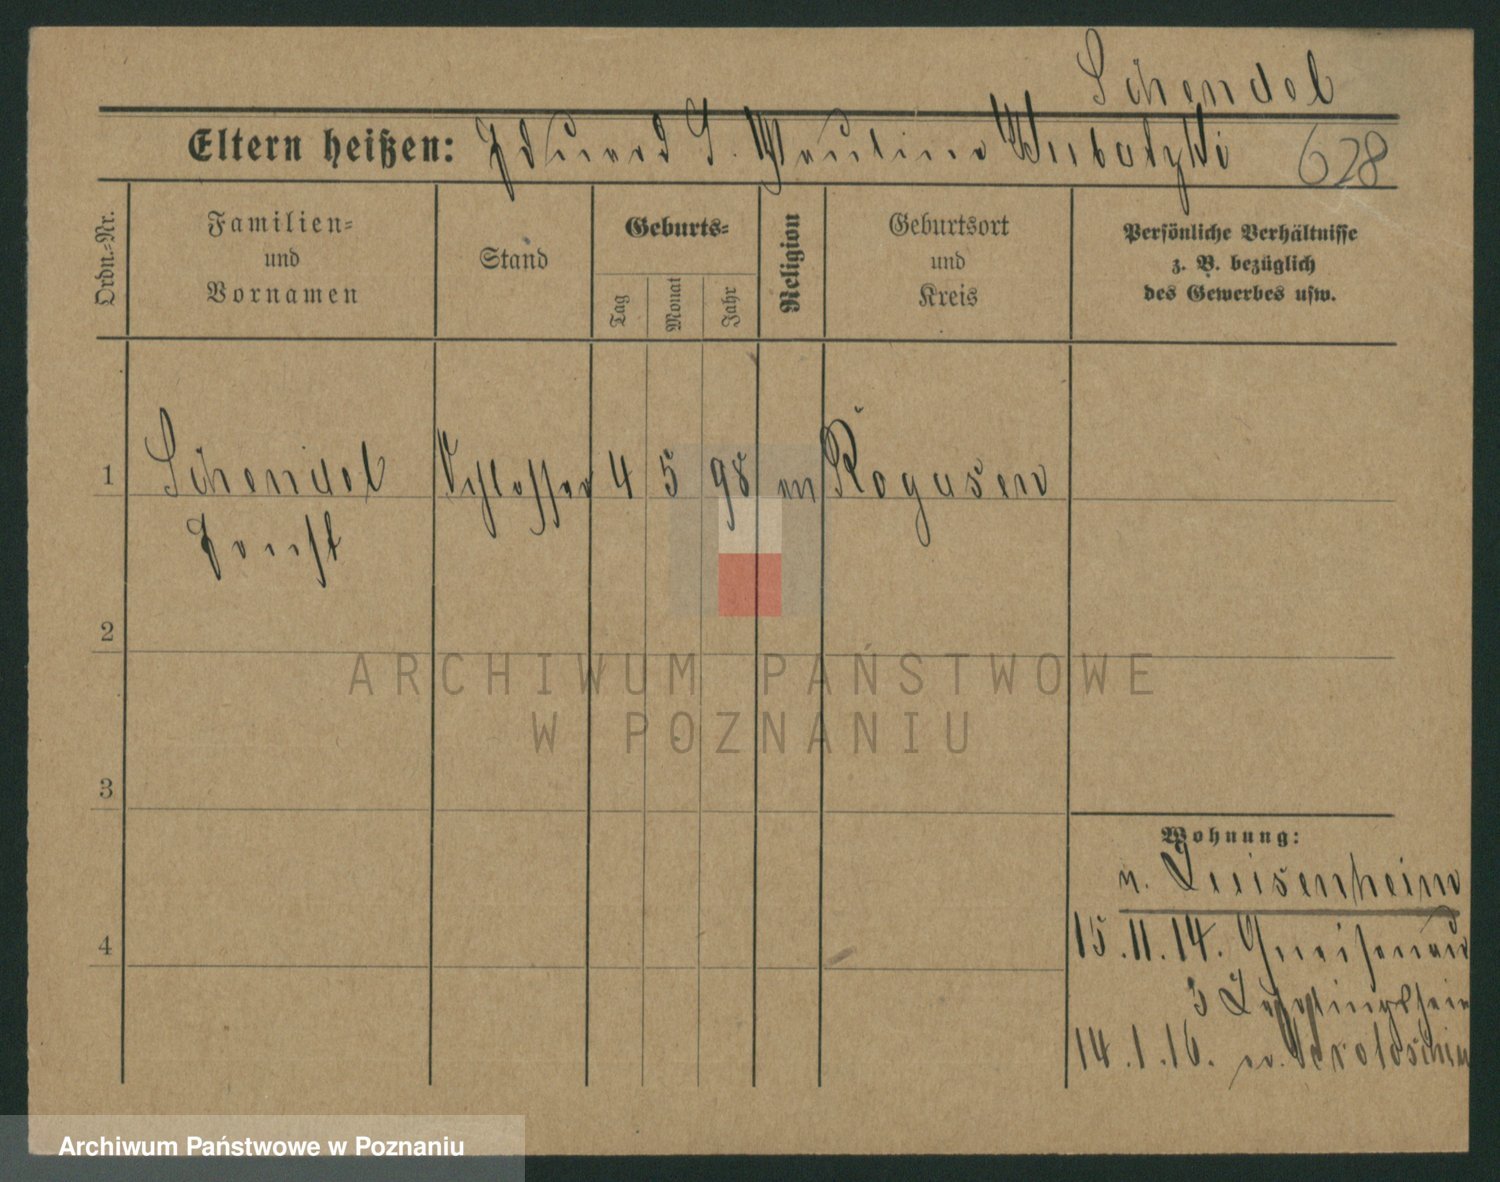 Schendel
Eltern heißen: Eduard u. Pauline
628
Ordn.-Nr.
Familien-
und
Vornamen
Stand
Geburts-
Tag
Monat
Jahr
Religion
Geburtsort
und
Kreis
Persönliche Verhältnisse
z. B. bezüglich
des Gewerbes usw.
1
Schendel
Schlosser
4
5
98
Rogasen
Ernst
2
3
4
Wohnung:
n. Luisenhain
15.11.14. Gneisenau
3
14.1.16. Krotoschin
ARCHIWUM PAŃSTWOWE
W POZNANIU
Archiwum Państwowe w Poznaniu